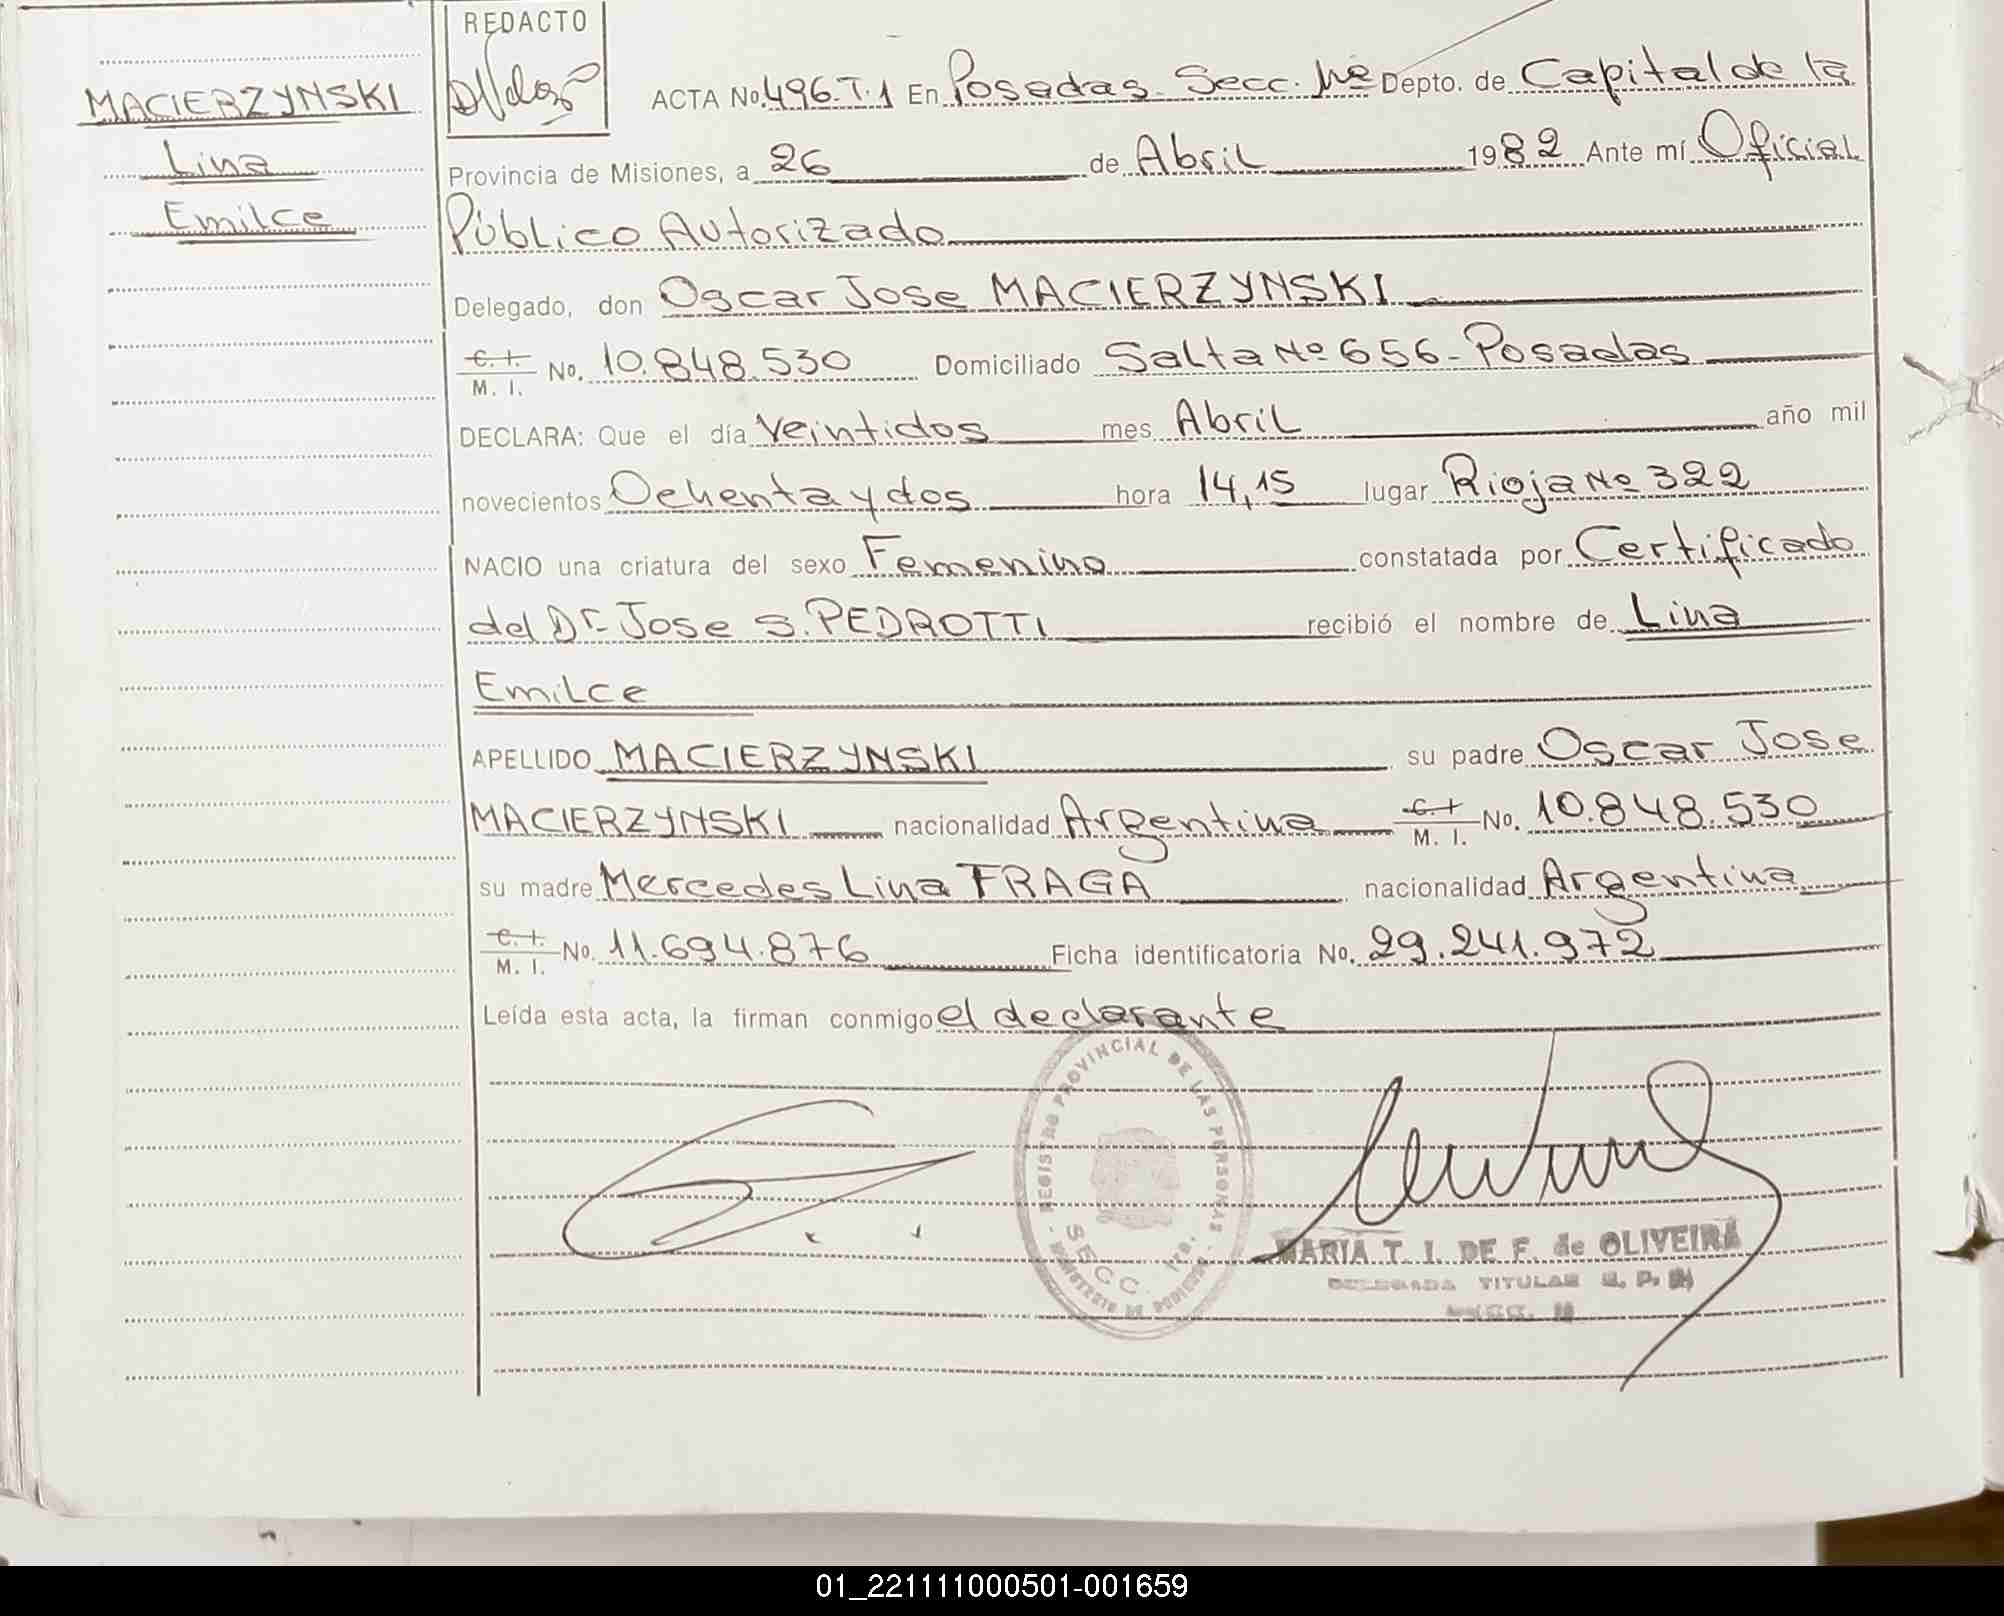 REDACTO
MACIERZYNSKI
Lina
Emilce
ACTA No. 496-T.1 En Posadas - Secc. 1ra Depto. de Capital de la
Provincia de Misiones, a 26 de Abril 1982 Ante mí Oficial
Público Autorizado
Delegado, don Oscar Jose MACIERZYNSKI
C. I. No. 10.848.530 Domiciliado Salta Nº 656 - Posadas
M. I.
DECLARA: Que el día veintidos mes Abril año mil
novecientos Ochenta y dos hora 14,15 lugar Rioja Nº 322
NACIO una criatura del sexo Femenino constatada por Certificado
del Dr. Jose S. PEDROTTI recibió el nombre de Lina
Emilce
APELLIDO MACIERZYNSKI su padre Oscar Jose
MACIERZYNSKI nacionalidad Argentina C. I. No. 10.848.530
M. I.
su madre Mercedes Lina FRAGA nacionalidad Argentina
C. I. No. 11.694.876 Ficha identificatoria No. 29.241.972
M. I.
Leída esta acta, la firman conmigo el declarante
REGISTRO PROVINCIAL DE LAS PERSONAS
MINISTERIO DE GOBIERNO
SECC. 1ra.
MARIA T. I. DE F. de OLIVEIRA
DELEGADA TITULAR R. P. P.
01_221111000501-001659